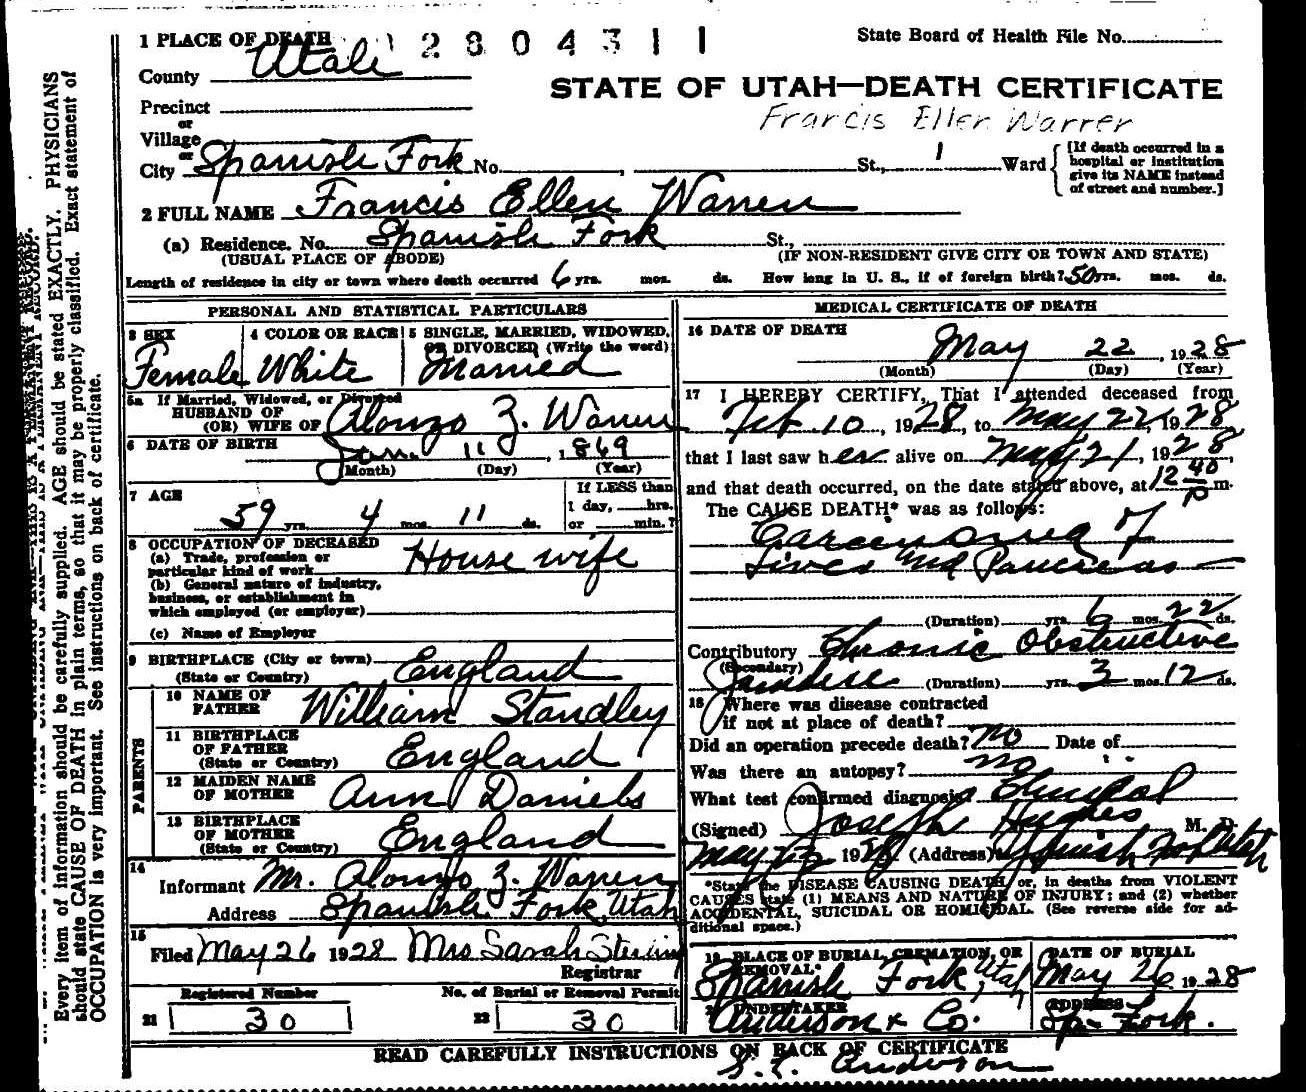 1 PLACE OF DEATH 2804311
State Board of Health File No.
County Utah
STATE OF UTAH—DEATH CERTIFICATE
Precinct
Francis Ellen Warren
or
Village
or
City Spanish Fork No. , St., 1 Ward
[If death occurred in a
hospital or institution
give its NAME instead
of street and number.]
2 FULL NAME Francis Ellen Warren
(a) Residence. No. Spanish Fork St.,
(USUAL PLACE OF ABODE) (IF NON-RESIDENT GIVE CITY OR TOWN AND STATE)
Length of residence in city or town where death occurred 6 yrs. mos. ds. How long in U. S., if of foreign birth? 50 yrs. mos. ds.
PERSONAL AND STATISTICAL PARTICULARS
3 SEX 4 COLOR OR RACE 5 SINGLE, MARRIED, WIDOWED,
OR DIVORCED (Write the word)
Female White Married
5a If Married, Widowed, or Divorced
HUSBAND OF
(OR) WIFE OF Alonzo Z. Warren
6 DATE OF BIRTH Jan. 11, 1869
(Month) (Day) (Year)
7 AGE If LESS than
1 day, hrs.
59 yrs. 4 mos. 11 ds. or min.?
8 OCCUPATION OF DECEASED
(a) Trade, profession or
particular kind of work House wife
(b) General nature of industry,
business, or establishment in
which employed (or employer)
(c) Name of Employer
9 BIRTHPLACE (City or town)
(State or Country) England
PARENTS
10 NAME OF
FATHER William Standley
11 BIRTHPLACE
OF FATHER
(State or Country) England
12 MAIDEN NAME
OF MOTHER Ann Daniels
13 BIRTHPLACE
OF MOTHER
(State or Country) England
14
Informant Mr. Alonzo Z. Warren
Address Spanish Fork, Utah
15
Filed May 26 1928 Mrs Sarah
Registrar
Registered Number No. of Burial or Removal Permit
21 30 22 30
MEDICAL CERTIFICATE OF DEATH
16 DATE OF DEATH
May 22, 1928
(Month) (Day) (Year)
17 I HEREBY CERTIFY, That I attended deceased from
Feb. 10, 1928, to May 22, 1928
that I last saw her alive on May 21, 1928,
and that death occurred, on the date stated above, at 12 40 p m.
The CAUSE DEATH* was as follows:
Carcinoma of
Liver and Pancreas
(Duration) yrs. 6 mos. 22 ds.
Contributory Chronic Obstructive
(Secondary)
Jaundice (Duration) yrs. 3 mos. 12 ds.
18 Where was disease contracted
if not at place of death?
Did an operation precede death? No Date of
Was there an autopsy? no
What test confirmed diagnosis? Clinical
(Signed) Joseph Hughes M. D.
May 1928 (Address) Spanish Fork Utah
*State the DISEASE CAUSING DEATH, or, in deaths from VIOLENT
CAUSES state (1) MEANS AND NATURE OF INJURY; and (2) whether
ACCIDENTAL, SUICIDAL OR HOMICIDAL. (See reverse side for ad-
ditional space.)
19 PLACE OF BURIAL, CREMATION, OR REMOVAL DATE OF BURIAL
Spanish Fork, Utah May 26 1928
UNDERTAKER ADDRESS
Anderson & Co. Sp- Fork.
READ CAREFULLY INSTRUCTIONS ON BACK OF CERTIFICATE
Anderson
Every item of information should be carefully supplied. AGE should be stated EXACTLY. PHYSICIANS
should state CAUSE OF DEATH in plain terms, so that it may be properly classified. Exact statement of
OCCUPATION is very important. See instructions on back of certificate.